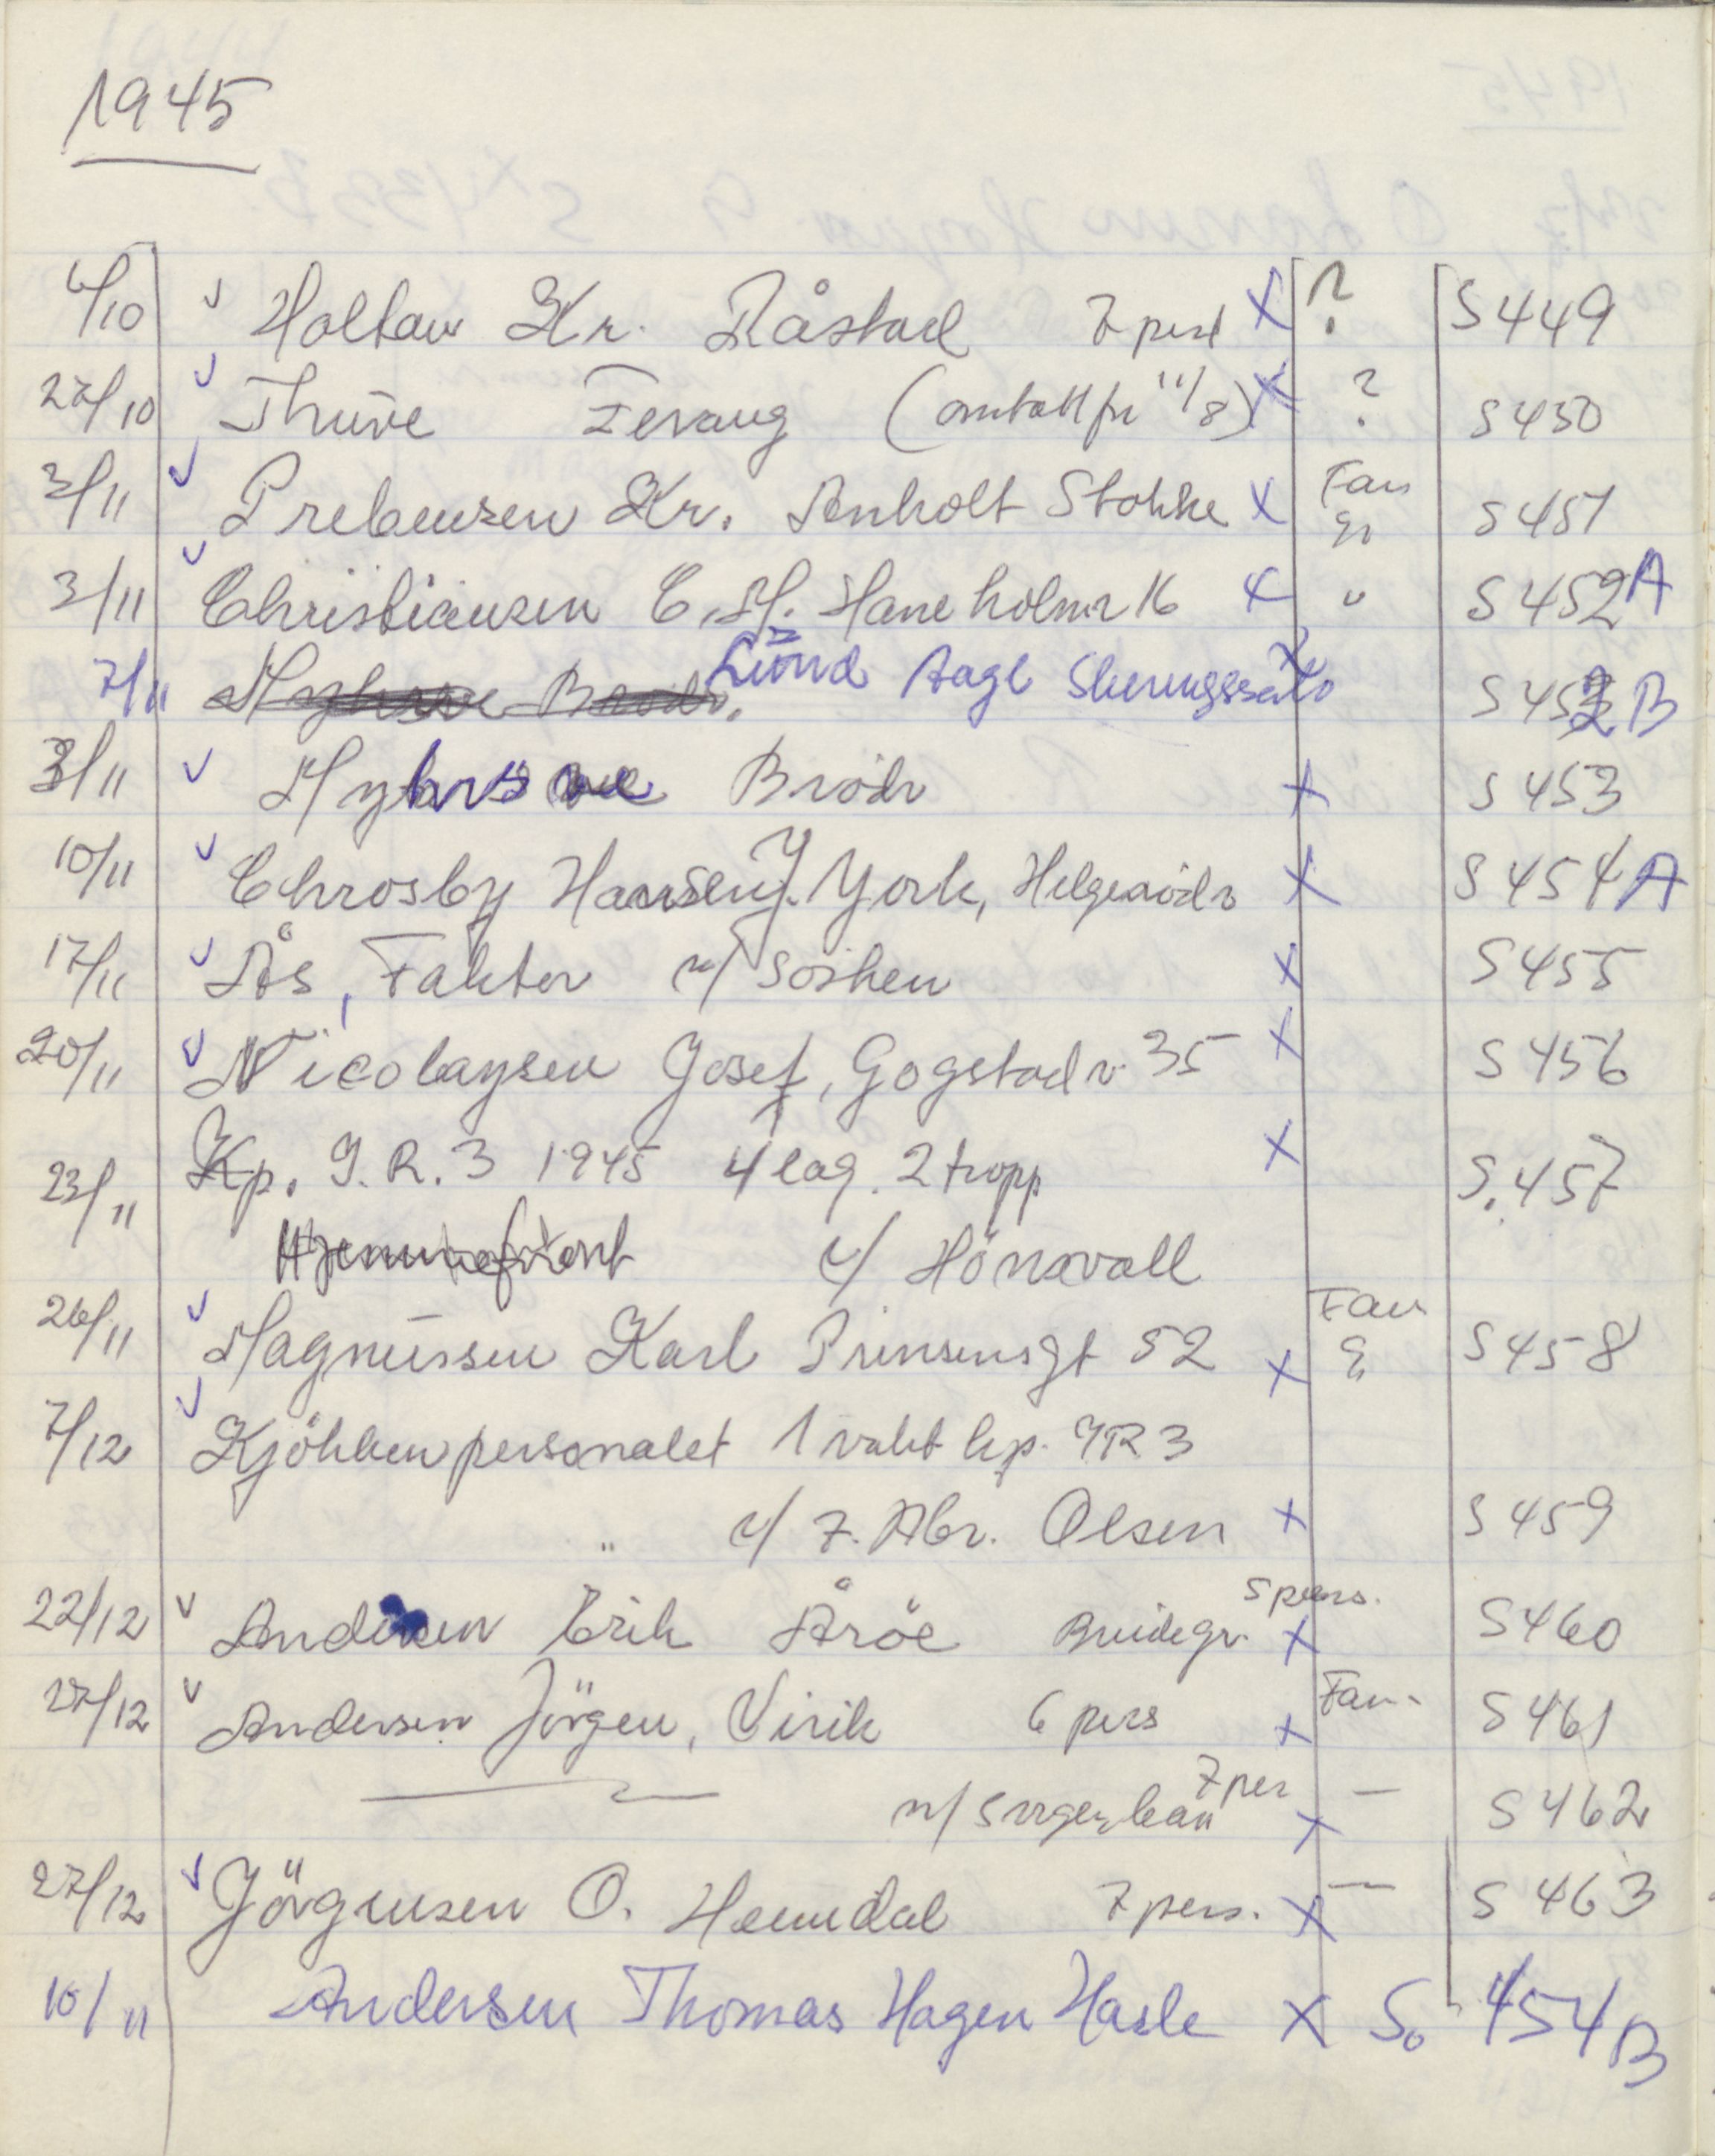 1945
6/10 v Holtan Kr. Råstad 7 pers X ? S 449
27/10 v Thure Fevang (omtatt fr 11/8) X ? S 450
3/11 v Prebensen Kr. Anholt Stokke X Fam gr S 451
3/11 v Christiansen C. H. Haneholmv 16 X " S 452 A
7/11 Myhre Brödr. Lund Aage X S 452 B
3/11 v Myhre Brödr X S 453
10/11 v Chrosby Hansen J. York, Helgerödv X S 454 A
17/11 v Ås, Faktor m/ Sösken X S 455
20/11 v Nicolaysen Josef, Gogstadv. 35 X S 456
23/11 Kp. I.R.3 1945 4 lag. 2 tropp X S. 457
Hjemmefront v/ Hönsvall
26/11 v Magnussen Karl Prinsensgt 52 X Fam g S 458
7/12 v Kjökkenpersonalet 1 vakt kp. IR 3
" v/ F. Abr. Olsen X S 459
22/12 v Andersen Erik Åröe Brudegr. 5 pers. X S 460
27/12 v Andersen Jörgen, Virik 6 pers X Fam. S 461
— " — m/ 7 per X — S 462
27/12 v Jörgensen O. Hemdal 7 pers. X — S 463
10/11 Andersen Thomas Hagen Hasle X S. 454 B